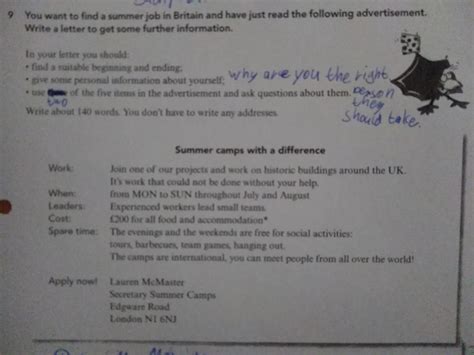 9 You want to find a summer job in Britain and have just read the following advertisement.
Write a letter to get some further information.
In your letter you should:
• find a suitable beginning and ending;
• give some personal information about yourself; why are you the right
• use of the five items in the advertisement and ask questions about them. person
two they
Write about 140 words. You don't have to write any addresses. should take.
Summer camps with a difference
Work: Join one of our projects and work on historic buildings around the UK.
It's work that could not be done without your help.
When: from MON to SUN throughout July and August
Leaders: Experienced workers lead small teams.
Cost: £200 for all food and accommodation*
Spare time: The evenings and the weekends are free for social activities:
tours, barbecues, team games, hanging out.
The camps are international, you can meet people from all over the world!
Apply now! Lauren McMaster
Secretary Summer Camps
Edgware Road
London N1 6NJ